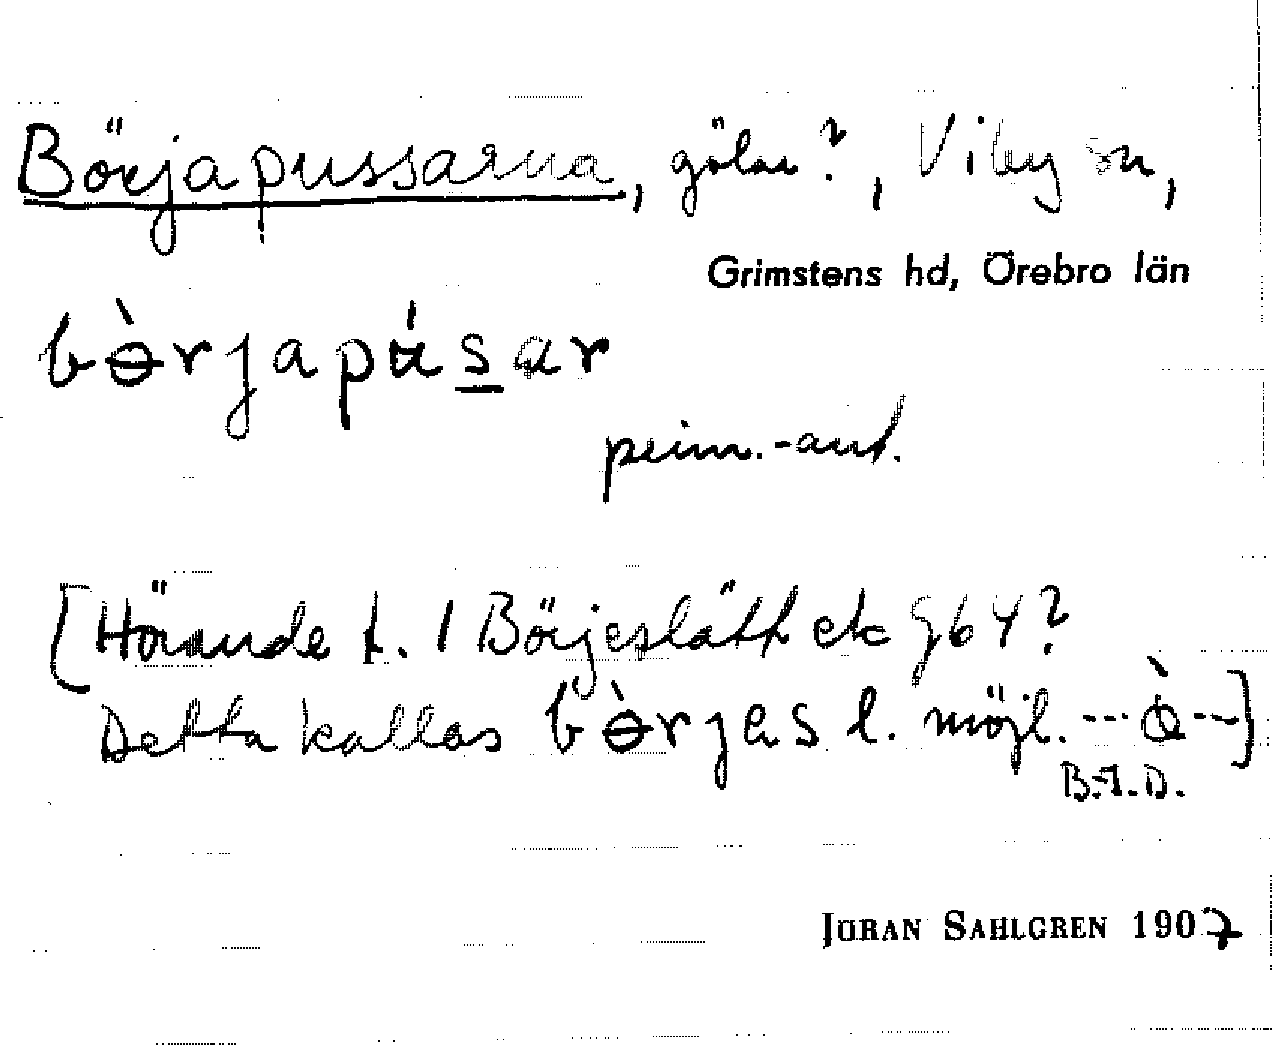 Börjapussarna, gölar?, Viby sn,
Grimstens hd, Örebro län
bɵ̀rjapús̲ar
prim.-ant.
[Hörande t. 1 Börjeslätt ek 964?
Detta kallas bɵ̀rjes l. möjl. ---ò--]
B.-D.
JÖRAN SAHLGREN 1907